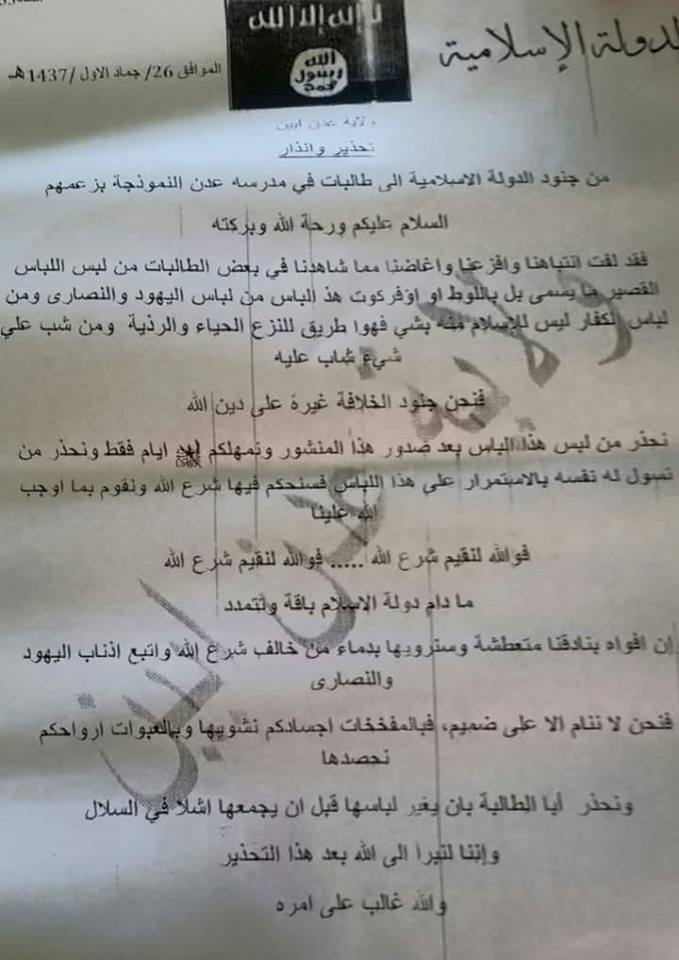 الدولة الإسلامية
لا إله إلا الله
الله
رسول
محمد
الموافق 26/ جماد الاول /1437هـ
ولاية عدن ابين
تحذير وانذار
من جنود الدولة الاسلامية الى طالبات في مدرسه عدن النموذجة بزعمهم
السلام عليكم ورحة الله وبركته
فقد لفت انتباهنا وافزعنا واغاضنا مما شاهدنا في بعض الطالبات من لبس اللباس
القصير ما يسمى بل باللوط او اوفركوت هذ الباس من لباس اليهود والنصارى ومن
لباس الكفار ليس للإسلام منه بشي فهوا طريق للنزع الحياء والرذية ومن شب علي
شيء شاب عليه
فنحن جنود الخلافة غيرة على دين الله
نحذر من لبس هذا الباس بعد صدور هذا المنشور ونمهلكم ايام فقط ونحذر من
تسول له نفسه بالاستمرار علي هذا اللباس فسنحكم فيها شرع الله ونقوم بما اوجب
الله علينا
فوالله لنقيم شرع الله ..... فوالله لنقيم شرع الله
ما دام دولة الاسلام باقة وتتمدد
إن افواه بنادقنا متعطشة وسنرويها بدماء من خالف شرع الله واتبع اذناب اليهود
والنصارى
فنحن لا ننام الا على ضميم، فبالمفخخات اجسادكم نشويها وبالعبوات ارواحكم
نحصدها
ونحذر أيا الطالبة بان يغير لباسها قبل ان يجمعها اشلا في السلال
وإننا لنبرا الى الله بعد هذا التحذير
والله غالب على امره
ولاية عدن ابين